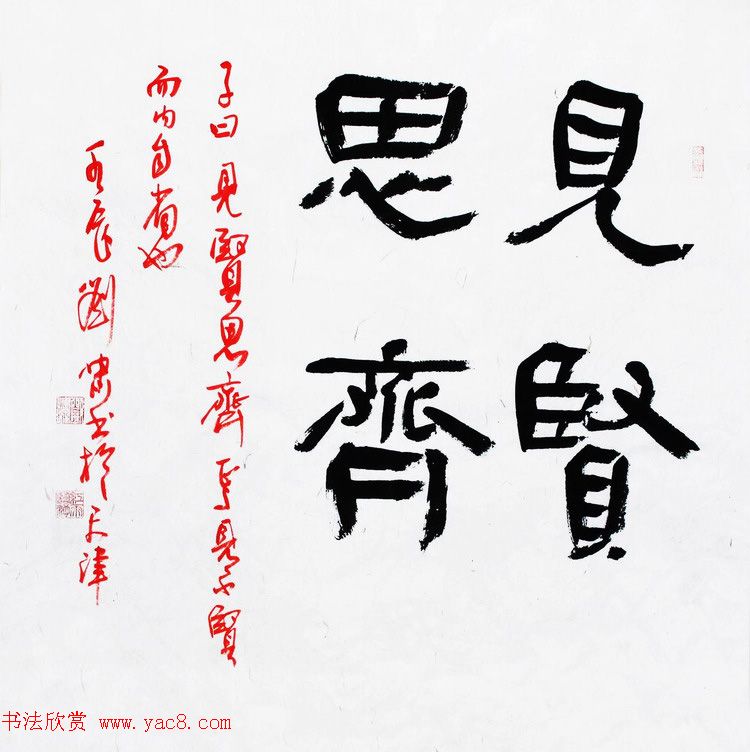 見賢
思齊
子曰見賢思齊焉見不賢
而内自省也
辰劉书於天津
书法欣赏 www.yac8.com